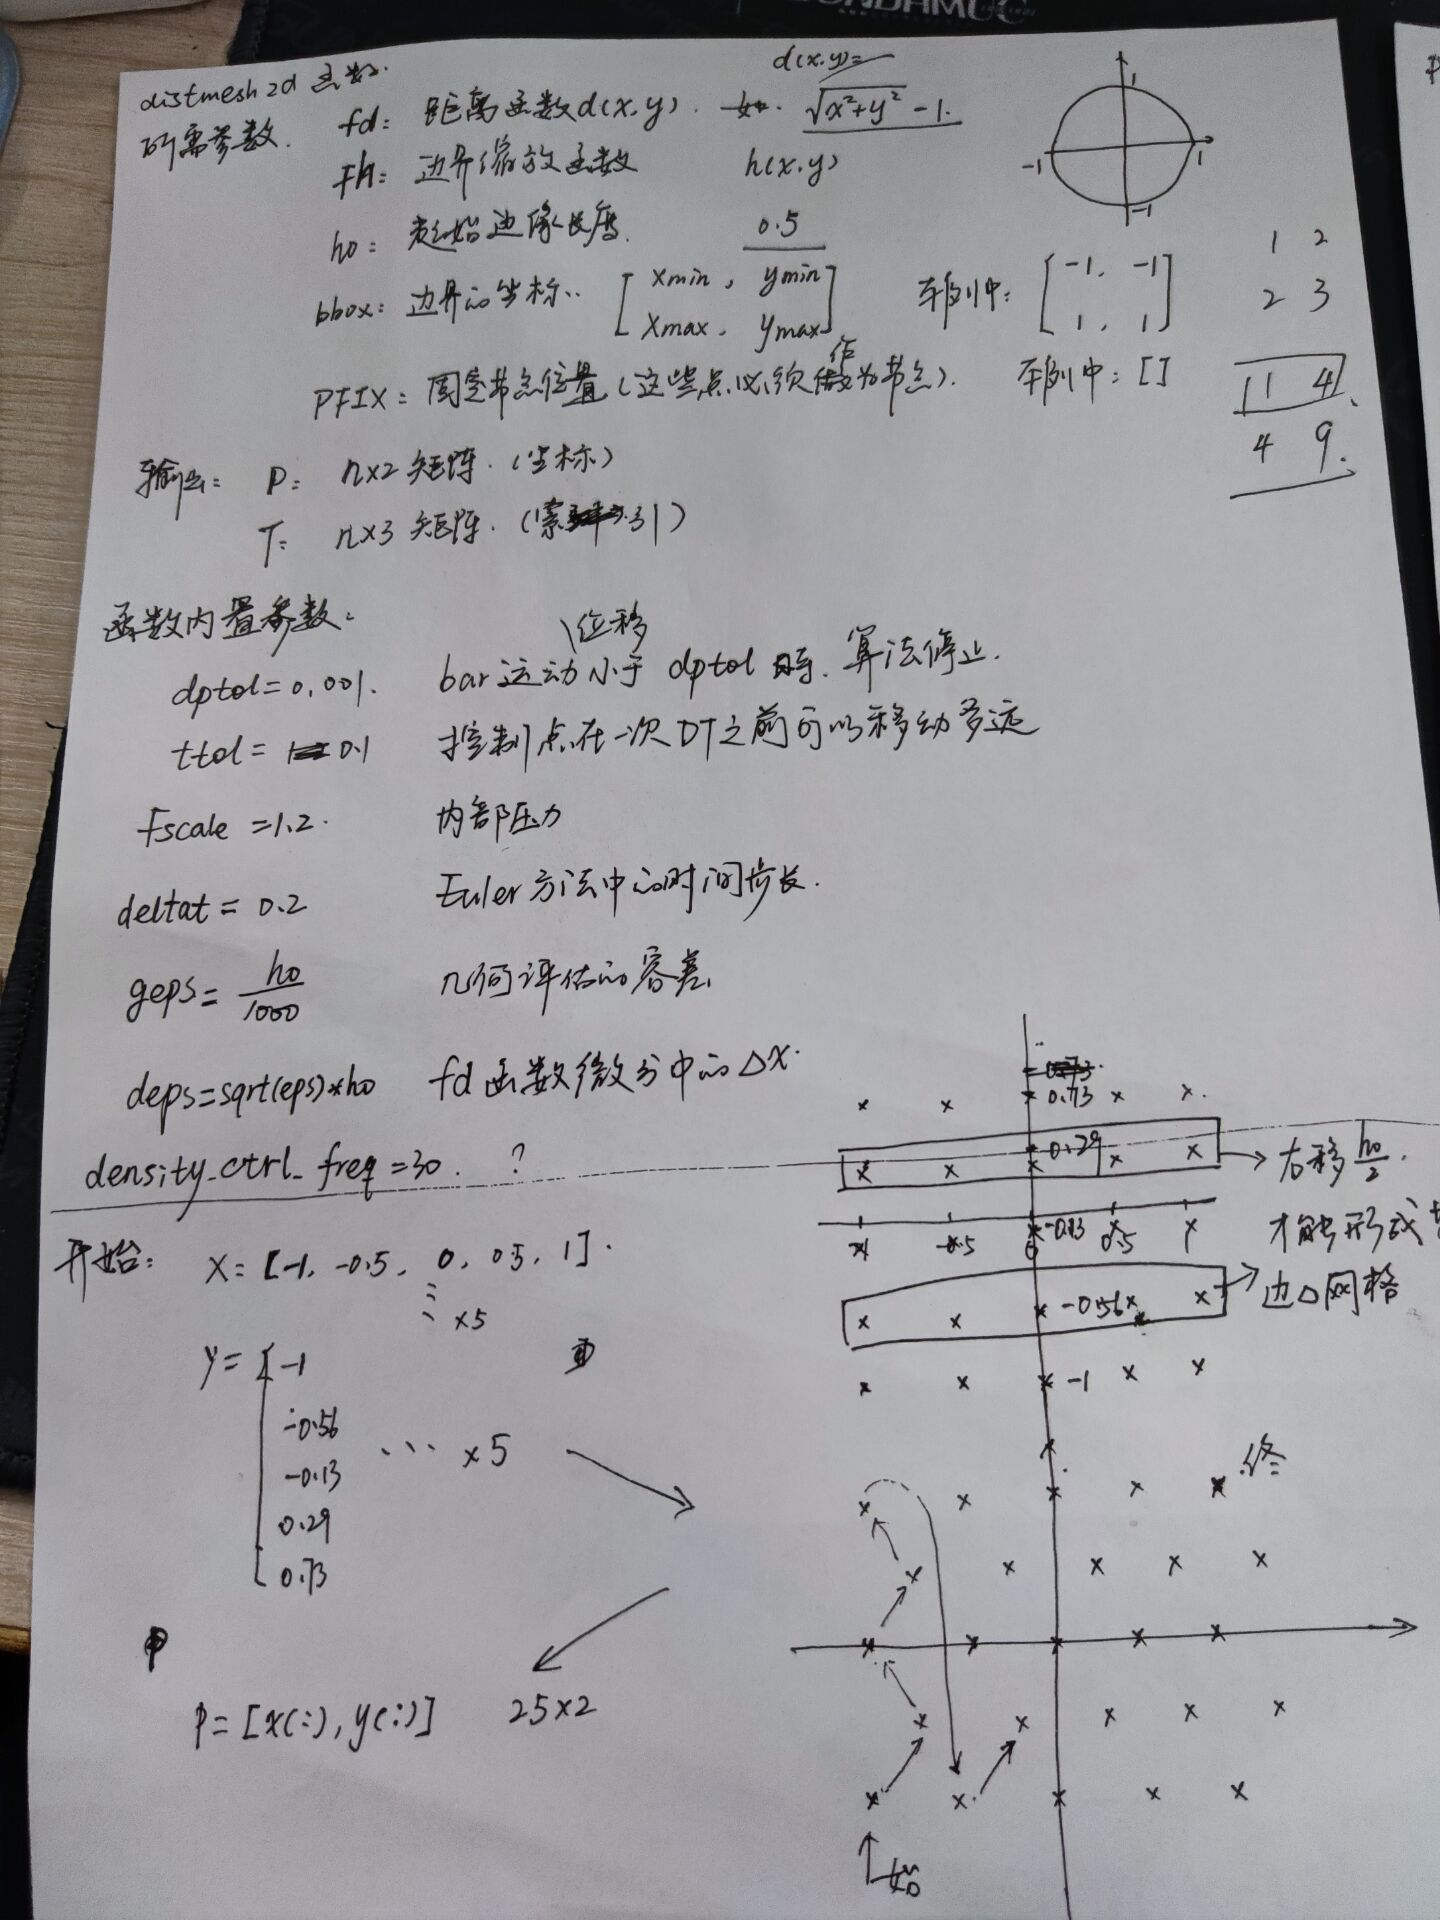 distmesh2d 函数
所需参数.
fd: 距离函数d(x,y). 如. d(x,y)= √x²+y² -1.
Fh: 边界缩放函数 h(x,y)
h0: 起始边缘长度. 0.5
bbox: 边界的坐标.. [xmin, ymin
xmax, ymax] 本例中: [-1, -1
1, 1]
PFIX: 固定节点位置(这些点必须作为节点). 本例中: []
1 2
2 3
11 4
4 9.
1
-1 1
-1
输出: P: n×2 矩阵. (坐标)
T: n×3 矩阵. (索引)
函数内置参数:
dptol=0.001. bar运动位移小于 dptol 时, 算法停止.
ttol= 0.1 控制点在一次DT之前可以移动多远
Fscale =1.2. 内部压力
deltat= 0.2 Euler方法中的时间步长.
geps= h0/1000 几何评估的容差
deps=sqrt(eps)*h0 fd函数微分中的Δx.
density_ctrl_freq=30. ?
开始: X=[-1, -0.5, 0, 0.5, 1].
×5
y= [-1
-0.56
-0.13
0.29
0.73
... ×5
P=[x(:), y(:)] 25×2
0.73
0.29
→ 右移 h0/2.
-1 -0.5 0 -0.13 0.5 1
才能形成
边△网格
-0.56
-1
终
始